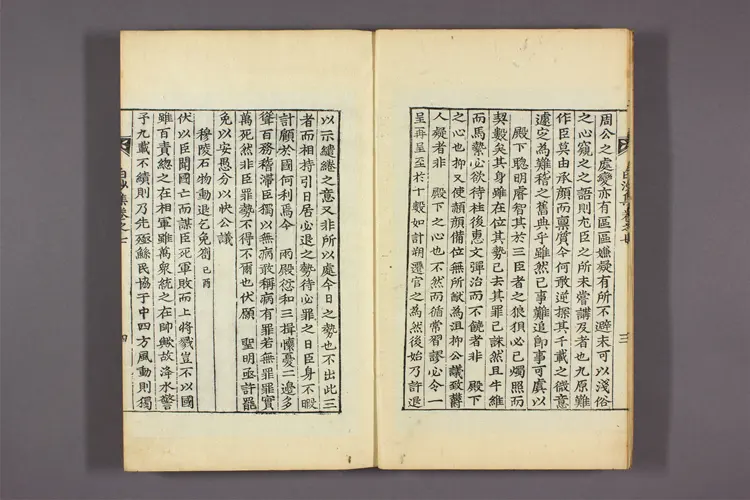 周公之處變亦有區區嫌疑有所不避未可以淺俗
之心窺之之語則尤臣之所未嘗講及者也九原難
作臣莫由承顔而稟質今何敢逆探其千載之微意
遽定為難稽之舊典乎雖然已事難追即事可虞以
殿下聰明睿智其於三臣者之狼狽必已燭照而
契數矣其身雖在位其勢已去其罪已誅然且牛維
而馬縶必欲待柱後惠文彈治而不饒者非 殿下
之心也抑又使顜顔備位無所猷為沮抑公議致欝
人疑者非 殿下之心也不然而循常習謬必令一
呈再呈至於十數如計朔遷官之為然後始乃許退
三
以示繾綣之意又非所以處今日之勢也不出此三
者而相持引日居必退之勢待必罪之日臣身不暇
計顧於國何利焉今 兩殿愆和三揖懷憂二邊多
聳百務稽滯臣獨以無病敢稱病有罪若無罪罪實
萬死然非臣罪勢不得不爾也伏願 聖明亟許罷
免以安愚分以快公議
穆陵石物動退乞免劄 己酉
伏以臣聞國亡而謀臣死軍敗而上將戮豈不以國
雖百責總之在相軍雖萬衆統之在帥歟故洚水警
予九載不績則乃先殛鯀民協于中四方風動則獨
白沙集卷之七
四